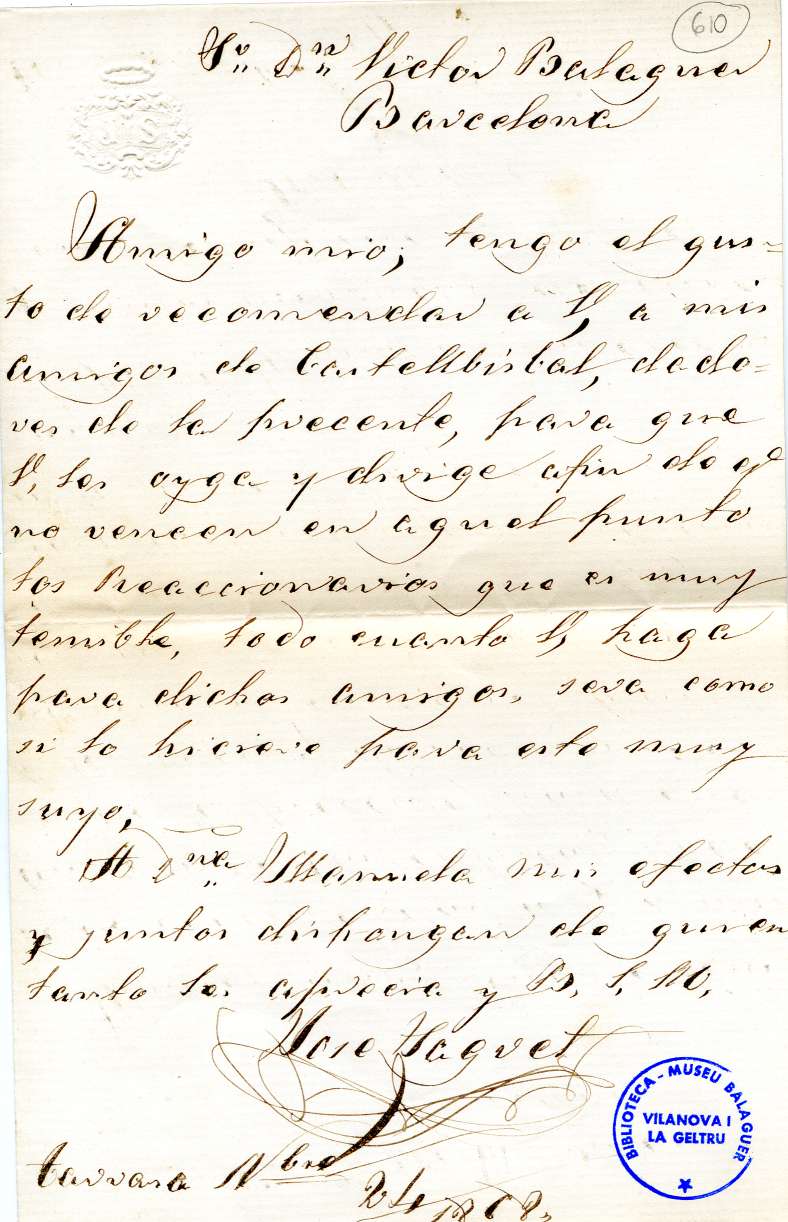 610
Sr. Dn. Victor Balaguer
Barcelona
Amigo mio; tengo el gus-
to de recomendar a V, a mis
amigos de Castellbisbal, dado-
res de la precente, para que
V, les oyga y dirige afin de qe
no vencen en aquel punto
los Reaccionarios que es muy
temible, todo cuanto V, haga
para dichos amigos, sera como
si lo hiciere para este muy
suyo,
A Dna. Manuela mis efectos
y juntos dispongan de quien
tanto les aprecia y B, S, M,
Jose Saguet
Tarrasa Nbre
24 1868,
BIBLIOTECA - MUSEU BALAGUER
VILANOVA I
LA GELTRU